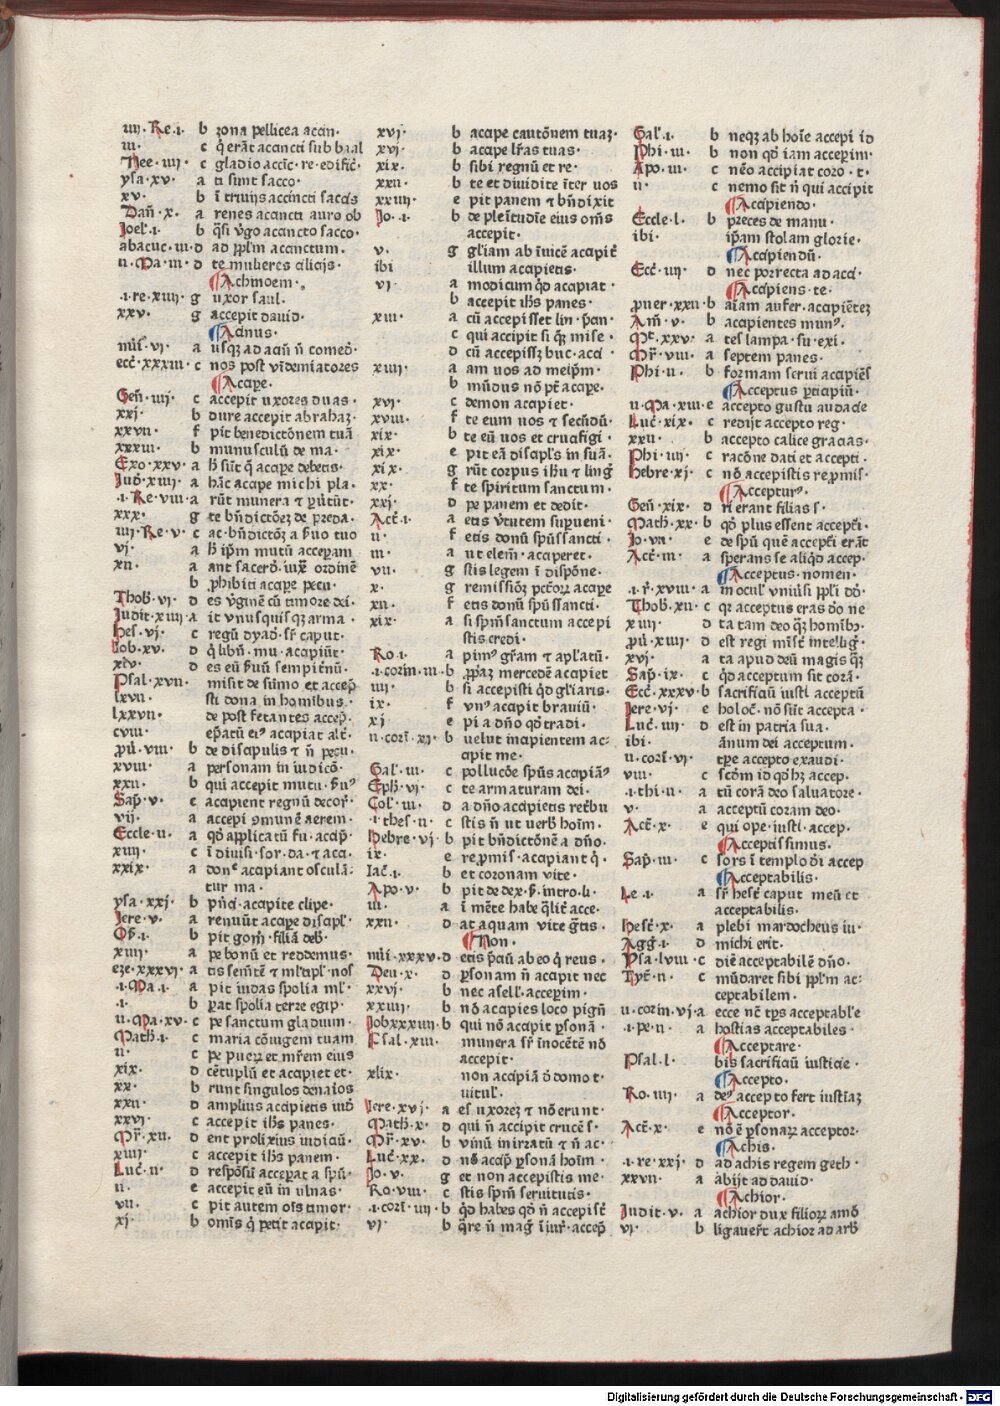 iiij·Re·i· b zona pellicea accin·
iii· c q̄ erāt accincti sub baal
Nee·iiij· c gladio accīc·re·edific̄·
ysa·xv· a ti sunt sacco·
xv· b ī triuijs accincti saccis
Dan̄·x· a renes accincti auro ob
Joel·i· b q̄si v̄go accincto sacco·
abacuc·iii·d ad ppl̄m accinctum·
ii·Ma·iii·d te mulieres cilicijs·
Achinoem·
·i·re·xiiij g uxor saul·
xxv· g accepit dauid·
Acinus·
a usqꝫ ad acin̄ n̄ comed̄·
ecc̄·xxxiii·c nos post vīdemiatores
Accipe·
Gen̄·iiij c accepit uxores duas·
xxj· b dure accepit abrahaꝫ·
xxvii· f pit benedictōnem tuā
xxxiii· b munusculū de ma·
Exo·xxv·a h̄ sūt q̄ accipe debetis·
Jud̄·xiiij·a hāc accipe michi pla·
·i·Re·viii·a rūt munera ⁊
xxx· g te bn̄dictōeꝫ de preda·
iiij·Re·v· c ac·bn̄dictōꝫ a ẜuo tuo
vj· a h̄ ip̄m mutū acceperam
xii· a ant sacerd̄·iuxͣ ordinē
b ꝓhibiti accipe pecu·
Thob̄·vj·d es v̄ginē cū timore dei·
Judit·xiiij·a it vnusquisqꝫ arma·
Hes·vj· c regū dyad̄·sr̄ caput·
Job·xv· d q̄ libn̄·mu·accipiūt·
xlv· d es eū ẜuū sempitn̄ū·
Psal·xvii· misit de sūmo et accep̄
lxvii· sti dona in hoīibus·
lxxvii· de post fetantes accep̄·
cviii·
ꝓu̇·viii· b de discipulis ⁊ n̄ pecu·
xviii· a personam in iudicō·
xxii· b qui accepit mutu·
Sap̄·v· c accipient regnū decor̄·
vij· a accepi ꝯmunē aerem·
Eccle·ii· a qd̄ applicatū fu·accip̄·
xiiij c ī diuisi·sor·da·⁊ acci·
xxix· a don̄ accipiant osculā·
tur ma·
ysa·xxj· b pn̄ci·accipite clipe·
Jere·v· a renuūt accipe discipl̄·
Os̄·i· b pit gom̄·filiā deb̄·
xiiij a pe bonū et reddemus·
eze·xxxvj·a tis sem̄tē ⁊ ml̄tipl̄·nos
·i·Ma·i· a pit iudas spolia ml̄·
·i· b ꝑat spolia terre egip·
ii·Ma·xv·c pe sanctum gladium·
Math̄·i· c maria cōiugem tuam
ii· c pe pueꝝ et mr̄em eius
xix· d cētuplū et accipiet et·
xx· b runt singulos denarios
xxii d amplius accipietis iud̄
xxvj c accepit ih̄s panes·
Mr̄·xii· d ent prolixius iudiciū·
xiiij c accepit ih̄s panem·
Luc̄·ii· d respōsū acceꝑat a spū·
ii· e accepit eū in vlnas·
vii· c pit autem oīs timor·
xj· b omīs q̄ petit accipit·
xvj· b accipe cautōnem tuaꝫ·
xvj· b accipe lr̄as tuas·
xix· b sibi regnū et re·
xxii· b te et diuidite īter uos
xxiiij· e pit panem ⁊ bn̄dixit
Jo·i· b de plēitudīe eius om̄s
accepit·
v· g gl̄iam ab īuicē accipit̄
ibi illum accipietis·
vj· a modicum qd̄ accipiat·
b accepit ih̄s panes·
xiii· a cū accepisset lin·p̄an·
c qui accipit si qꝫ mise·
d cū accepissꝫ buc·acci·
xiiij a am uos ad meip̄m·
b mūdus nō pt̄ accipe·
xvj· c demon accipiet·
xviii· f te eum uos ⁊ secn̄dū·
xix· b te eū uos et crucifigi·
xix· e pit eā discipl̄s in suā·
xix· g rūt corpus ih̄u ⁊ linḡ
xx· f te spiritum sanctum·
xxj· d pe panem et dedit·
Act̄·i· a etis v̄tutem supueni·
ii· f etis donū spūssancti·
iii· a ut elem̄·acciperet·
vii· g stis legem ī dispōne·
x· g remissiōꝫ pctōꝝ accipe
xii· f etis donū spūssancti·
xix· a si sp̄m sanctum accepi
stis credi·
Ro·i· a pimꝰ gr̄am ⁊ apl̄atū·
·i·corin̄·iii·b ꝓp̄aꝫ mercedē accipiet
iiij· b si accepisti qd̄ gl̄iaris·
ix· f vnꝰ accipit brauiū·
xj· e pi a dn̄o qd̄ tradi·
ii·corī·xj· b uelut insipientem ac·
cipit me·
Gal̄·iii· c pollucōe spūs accipiāꝰ
Eph̄·vj· c te armaturam dei·
Col̄·iii· d a dn̄o accipietis ret̄bu
·i·thes̄·ii· c stis n̄ ut uerb̄ hoīm·
Hebre·vj·b pit bn̄dictōnē a dn̄o·
ix· e reꝓmis·accipiant q̄·
Jac̄·i· b et coronam vite·
Apo·v· b pit de dex·
iii· a ī mēte habe q̄lit̄ acce·
xxii· d at aquam vite gr̄tis·
Non·
xxxv·d etis p̄ciū ab eo q̄ reus·
Deu·x· d ꝑsonam n̄ accipit nec
xxvj· b nec asell̄·acceꝑim·
xxiiij· b nō accipies loco pign̄
Job·xxxiiij·b qui nō accipit ꝑsonā·
Psal·xiii· munera sr̄ inocētē nō
accepit·
xlix· non accipiā d̄ domo t·
uitul̄·
Jere·xvj· a es uxoreꝫ ⁊ nō erunt·
Math̄·x· d qui n̄ accipit crucē s̄·
Mr̄·xv· b vinū mirratū ⁊ n̄ ac·
Luc̄·xx· d nō accip̄ ꝑsonā hoīm·
Jo·v· g et non accepistis me·
Ro·viii· c stis sp̄m seruitutis·
·i·corī·iiij·b qd̄ habes qd̄ n̄ accepist̄
vj· b q̄re n̄ maḡ īiur̄·accep̄
Gal̄·i· b neqꝫ ab hoīe accepi id
Phi·iii· b non qd̄ iam acceꝑim·
Apo·iii· c nēo accipiat coro·t·
ii· c nemo scit n̄ qui accipit
Accipiendo·
Eccle·l· b preces de manu·
ibi· ip̄am stolam glorie·
Accipiendū·
Ecc̄·iiij d nec porrecta ad acci·
Accipiens·te·
ꝓuer·xxii·b aīam aufer·accipiēteꝫ
Am̄·v· b accipientes munꝰ·
Mt̄·xxv· a tes lampa·su·exi·
Mr̄·viii· a septem panes·
Phi·ii· b formam serui accipiēs
Acceptus ꝑticipiū·
ii·Ma·xiii·e accepto gustu audacie
Luc̄·xix· c redijt accepto reg·
xxii· b accepto calice gracias·
Phi·iiij· c racōne dati et accepti·
Hebre·xj· c nō accepistis reꝓmis·
Acceptur̄ꝰ·
Gen̄·xix· d ri erant filias s·
Math̄·xx·b qd̄ plus essent accept̄i·
Jo·vii· e de spū quē accept̄i erāt
Act̄·iii· a sperans se aliqd̄ accep·
Acceptus·nomen·
·i·r̄·xviii·a in ocul̄ vniūsi ppl̄i
Thob̄·xii·c qꝛ acceptus eras dō ne
xiiij d ta tam deo qꝫ homībꝰ·
ꝓu̇·xiiij d est regi misr̄ intelliḡ·
xvj· a ta apud deū magis qꝫ
Sap̄·ix· c qd̄ acceptum sit corā·
Ecc̄·xxxv·b sacrificiū iusti acceptū
Jere·vj· e holoc̄·nō sūt accepta·
Luc̄·iiij d est in patria sua·
ibi· ānum dei acceptum·
ii·corī·vj· tp̄e accepto exaudi·
viii· c scdm id qd̄ hꝫ accep·
·i·thi·ii· a tū corā deo saluatore·
v· a acceptū coram deo·
Act̄·x· e qui ope·iusti·accep·
Acceptissimus·
Sap̄·iii· c sors ī templo d̄i accep
Acceptabilis·
Le·i· a sr̄ host̄ caput meū et
acceptabilis·
Hest̄·x· a plebi mardocheus iu·
Agḡ·i· d michi erit·
Ysa·lviii·c diē acceptabilē dn̄o·
Tyt̄·ii· c mūdaret sibi ppl̄m ac·
ceptabilem·
ii·corin̄·vj·a ecce nc̄ tp̄s acceptabl̄e
·i·pe·ii· a hostias acceptabiles·
Acceptare·
Psal·l· bis sacrificiū iusticie·
Accepto·
Ro·iiij· a deꝰ accepto fert iusticiaꝫ
Acceptor·
Act̄·x· e nō ē ꝑsonaꝝ acceptor·
Achis·
·i·re·xxj· d ad achis regem geth·
xxvii· a abijt ad dauid·
Achior·
Judit·v· a achior dux filioꝝ amō
vj· b ligauer̄t achior ad arb̄
Digitalisierung gefördert durch die Deutsche Forschungsgemeinschaft - DFG